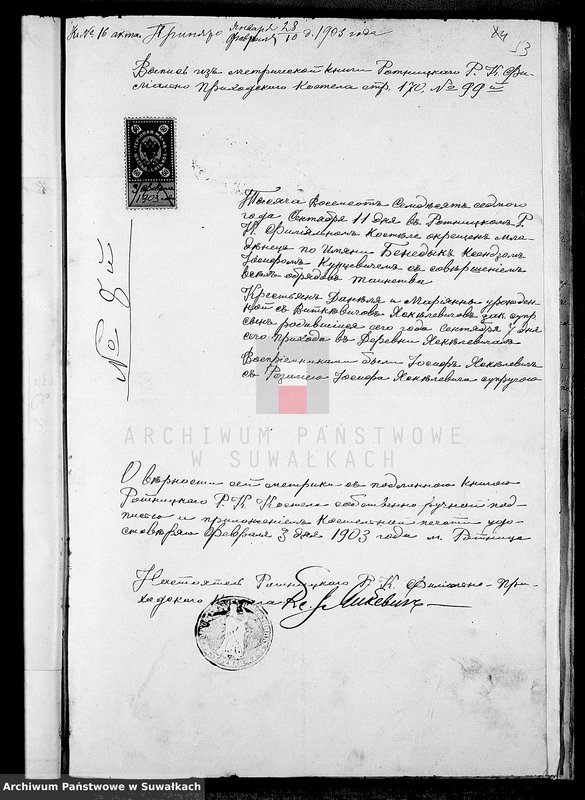 Къ № 16 акта. Принято Января 28 / Февраля 10 д. 1903 года
53
Выпись изъ метрической книги Ротницкаго Р. К. Фи-
лiально приходскаго Костела стр. 170, № 99й
3 Февраля
1903
№ 8й
Тысяча Восемьсотъ Семдьсятъ седмого
года Сентября 11 дня въ Ротницкомъ Р.
К. Филіальномъ Костеле окрещенъ мла-
денецъ по Имяни Бенедыкъ Ксендзомъ
Іосифомъ Курцевичемъ съ совершеніемъ
всехъ обрядовъ Таинства
Крестьянъ Даніеля и Маріянны урожден-
ной съ Витковичовъ зак. супр.
сынъ родившійся сего года Сентября 4 дня
сего прихода въ Деревни
Воспріемниками были Іосифъ
съ Розаліею Іосифа супругою
ARCHIWUM PAŃSTWOWE
W SUWAŁKACH
О верности сей метрики съ подлинною книгою
Ротницкаго Р. К. Костела собственно ручной под-
писью и приложеніемъ костельной печати удо-
стоверяю Февраля 3 дня 1903 года м. Ротница
Настоятель Ротницкаго Р. К. Филіально-При-
ходскаго Костела Кс.
Archiwum Państwowe w Suwałkach